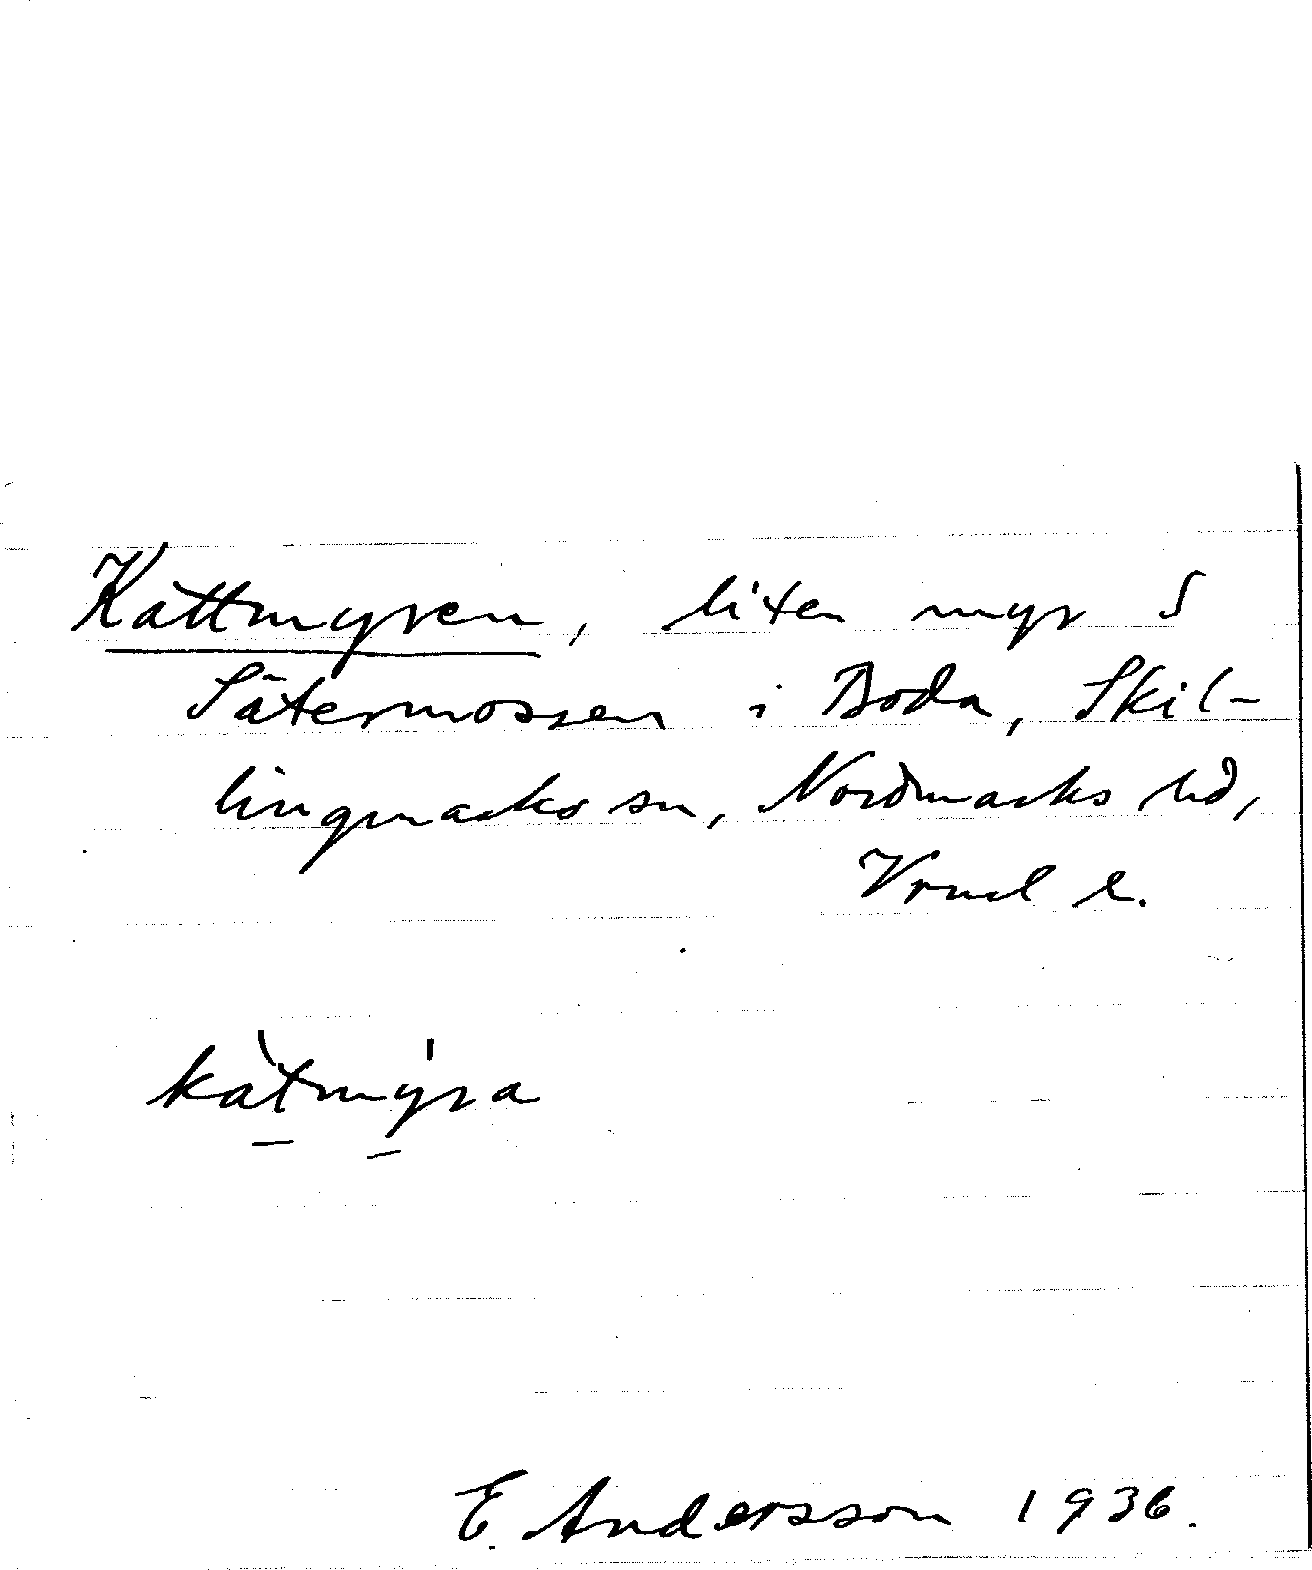 Kattmyren, liten myr S
Sätermossen i Boda, Skil-
lingmarks sn, Nordmarks hd,
Vrml l.
kàtmýra
E. Andersson 1936.